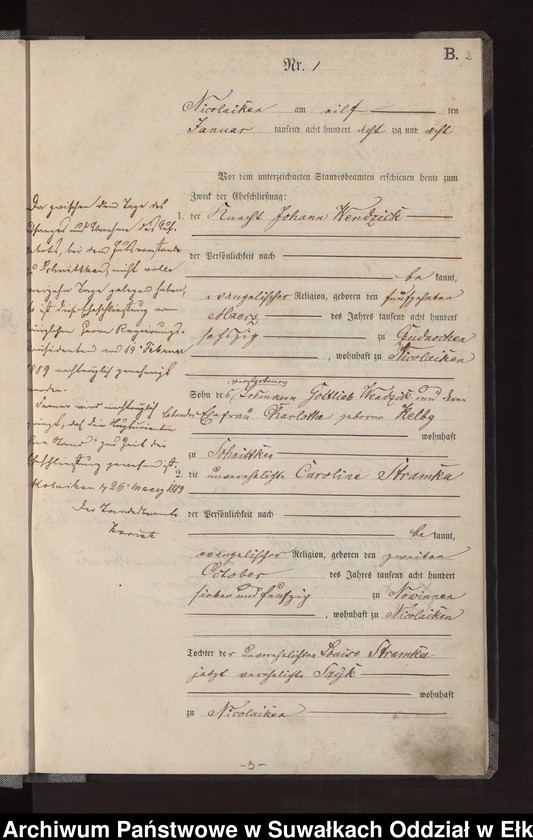 B. 2
Nr. 1
Nicolaiken am eilf ten
Januar tausend acht hundert acht zig und acht
Vor dem unterzeichneten Standesbeamten erschienen heute zum
Zweck der Eheschließung:
1. der Knecht Johann Wendzick
der Persönlichkeit nach
be kannt,
evangelischer Religion, geboren den fünfzehnten
Maerz des Jahres tausend acht hundert
sechszig zu
, wohnhaft zu Nicolaiken
verstorbenen
Sohn des Gottlieb Wendzick und deren
lebenden Ehefrau Charlotte geborne Kelby
wohnhaft
zu Schnittken
2. die unverehelichte Caroline Stramka
der Persönlichkeit nach
be kannt,
evangelischer Religion, geboren den zweiten
October des Jahres tausend acht hundert
sieben und fünfzig zu Nowinnen
, wohnhaft zu Nicolaiken
Tochter der unverehelichten Louise Stramka
jetzt verehelichte Sayk
wohnhaft
zu Nicolaiken
Da zwischen dem Tage des
und Abnahme des Auf-
gebots, bei dem
zu Schnittken, nicht volle
vierzehn Tage gelegen haben,
so ist diese Eheschließung vom
Königlichen Herrn Regierungs-
präsidenten am 19 Februar
1889 nachträglich genehmigt
worden.
Ferner wird nachträglich
daß
zur Zeit der
Eheschließung gewesen ist.
Nicolaiken 26 Maerz 1889
Der Standesbeamte
-3-
Archiwum Państwowe w Suwałkach Oddział w Ełk